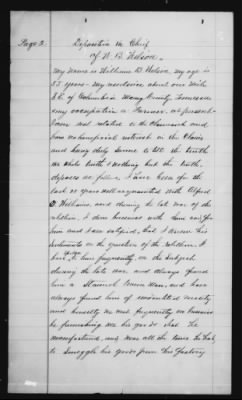 Page 2. Deposition in Chief
of W. B. Wilson.
My name is William B Wilson, my age is
53 years - My residence about one mile
S.E. of Columbia Maury County, Tennessee
my occupation a Farmer. at present
I am not related to the Claimant and
have no beneficial interest in the Claim
and being duly sworn to tell the truth
the whole truth & nothing but the truth,
deposes as follows, I have been for the
last 20 years well acquainted with Alfred
Williams, and during the late war of the
rebellion, I done business with him and for
him and I am satisfied, that I know his
sentiments on the question of the rebellion. I
have talked to him frequently, on the subject
during the late war and always found
him a Staunch Union Man, and have
always found him of undoubted veracity
and honesty. We met frequently on business
he furnishing me his goods that he
manufactured, and was all the time
to smuggle his goods from his factory